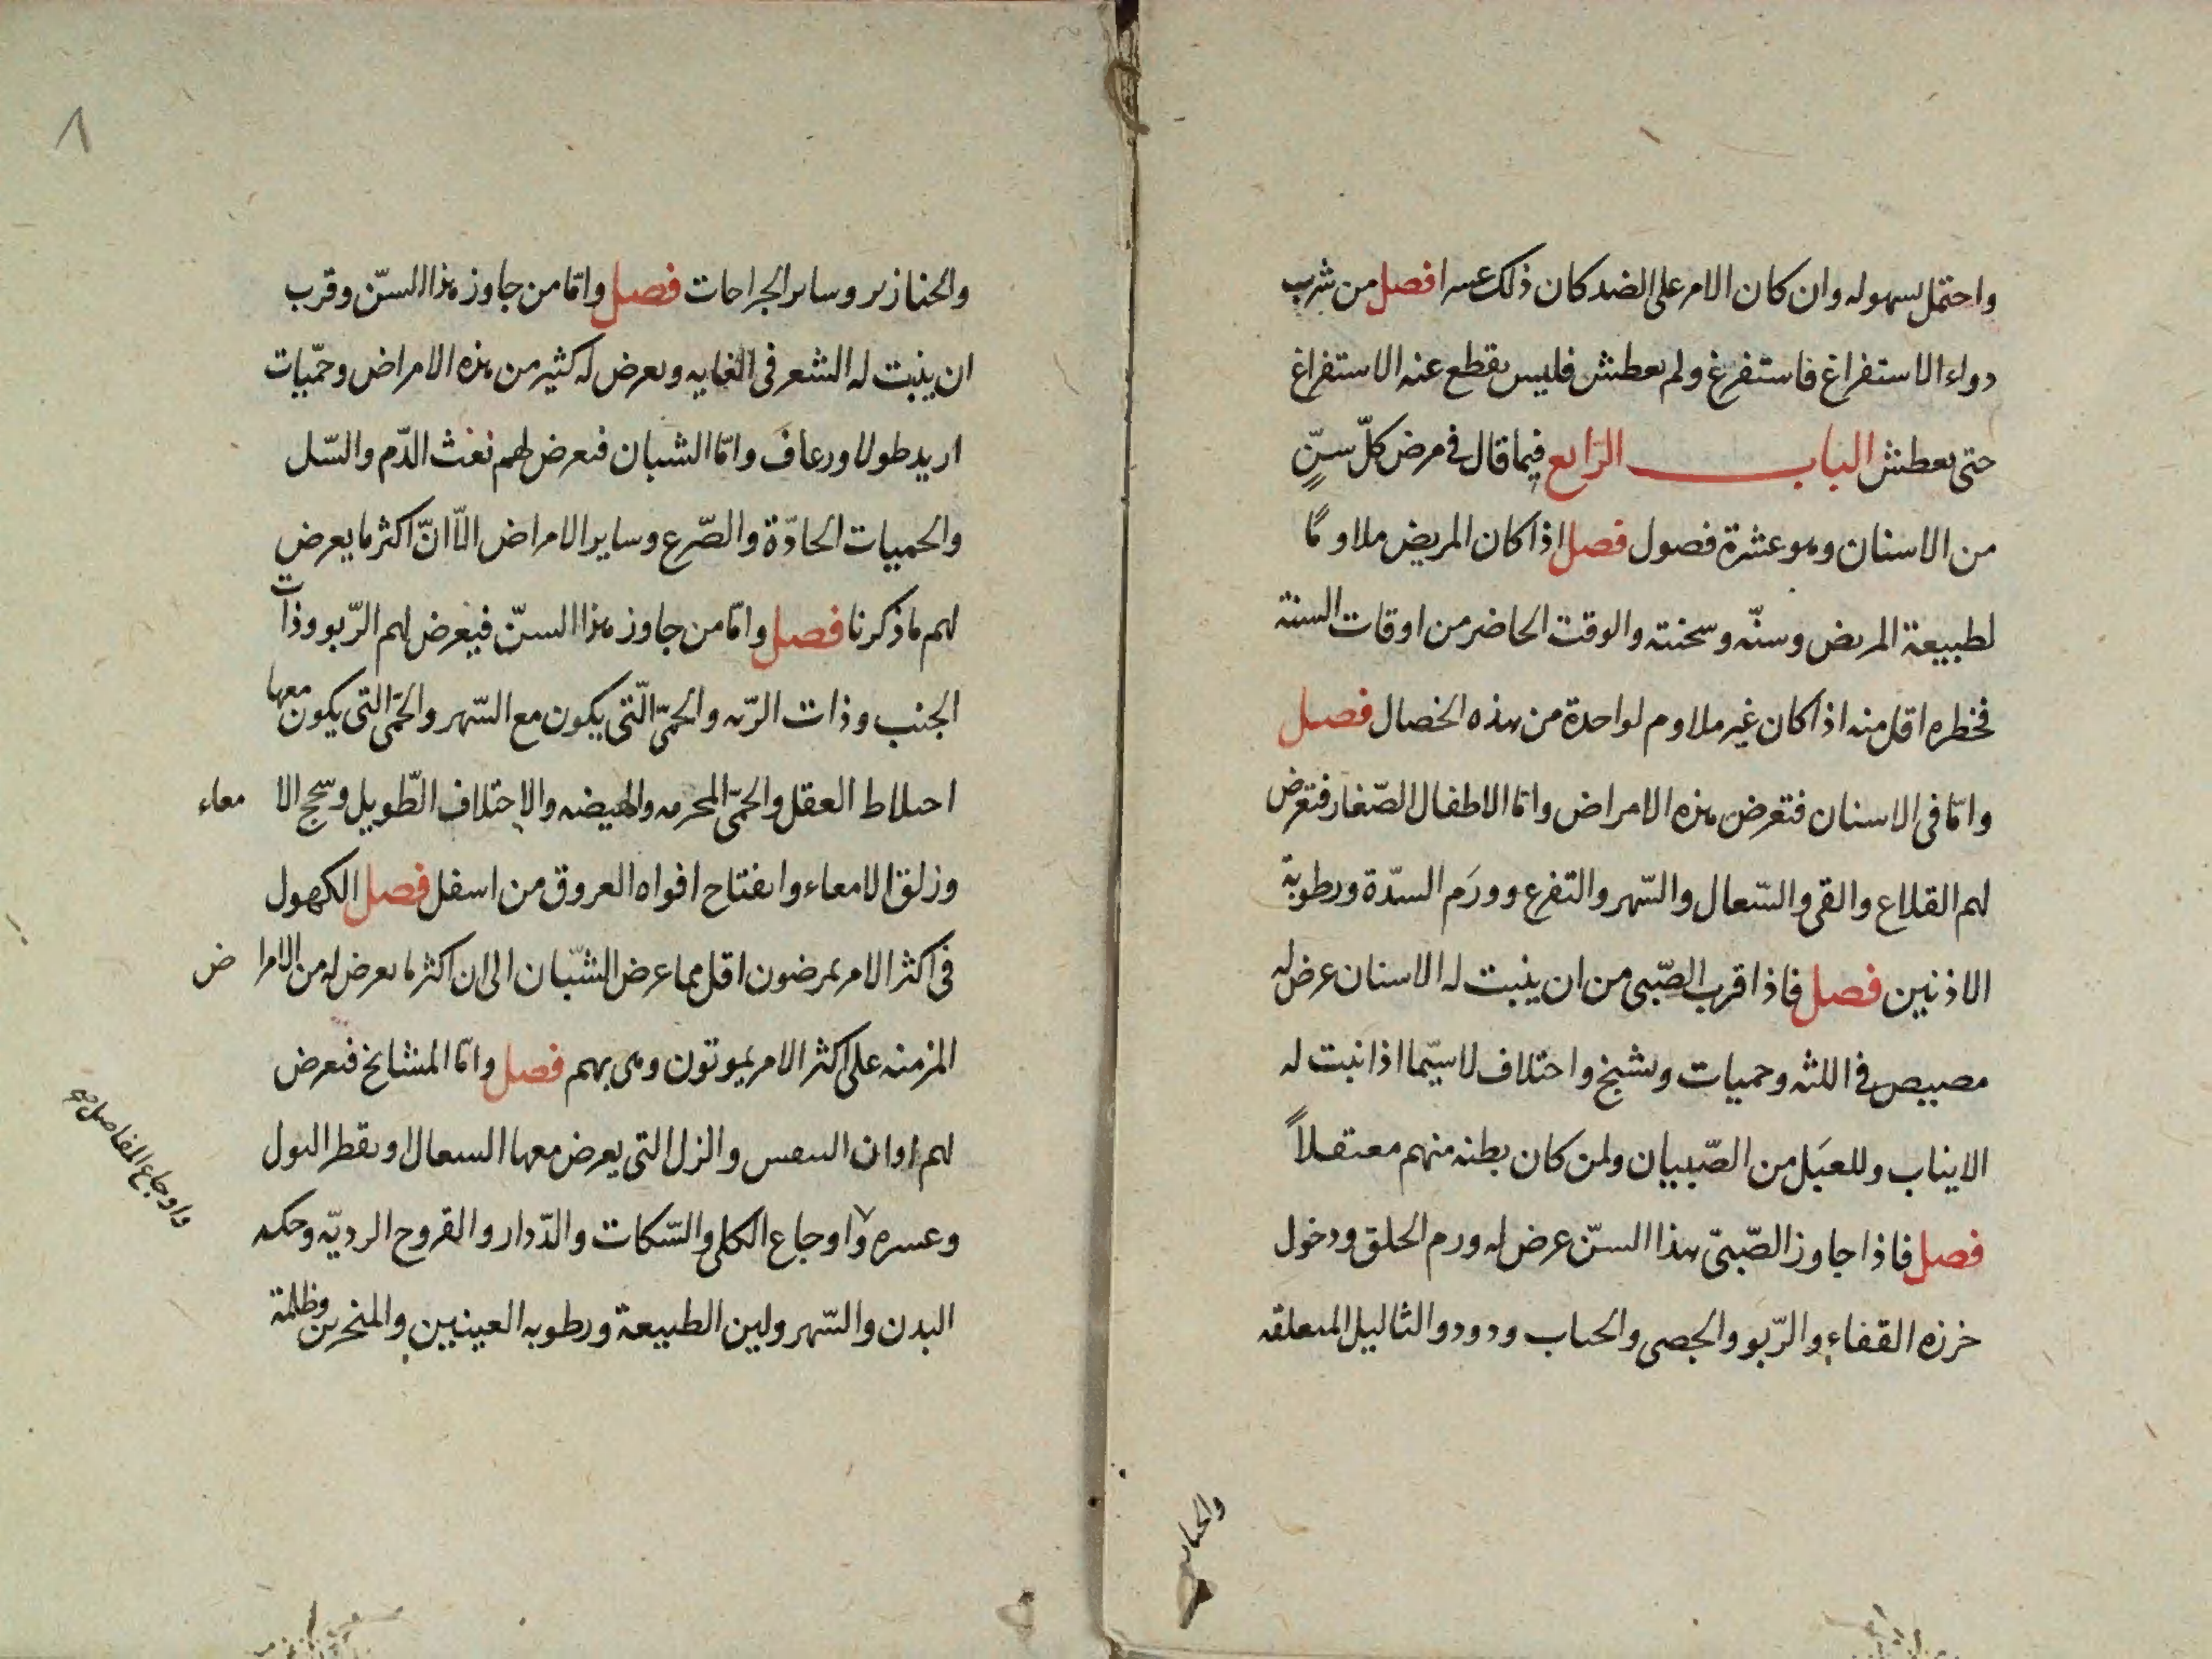 واحتمل بسهوله وان كان الامر على الضد كان ذلك عسرا فصل من شرب
دواء الاستفراغ فاستفرغ ولم يعطش فليس يقطع عنه الاستفراغ
حتى يعطش الباب الرابع فيما قال في مرض كلّ سنٍّ
من الاسنان وهو عشرة فصول فصل اذا كان المريض ملاوما
لطبيعة المريض وسنّه وسحنته والوقت الحاضر من اوقات السنة
فخطره اقل منه اذا كان غير ملاوم لواحدة من هذه الخصال فصل
وامّا في الاسنان فتعرض هذه الامراض وامّا الاطفال الصّغار فتعرض
لهم القلاع والقي والسّعال والسّهر والتفزع وورَم السدّة ورطوبة
الاذنين فصل فاذا قرب الصّبي من ان ينبت له الاسنان عرض له
مصيص في اللثه وحميات وتشنج واختلاف لاسيّما اذا نبت له
الايناب وللعبَل من الصّبيان ولمن كان بطنه منهم معتقلاً
فصل فاذا جاوز الصّبيّ هذا السنّ عرض له ورم الحلق ودخول
خرزه القفاء والرّبو والحصى والحباب ودود والثاليل المتعلقه
والخنازير
والخنازير وساير الجراحات فصل وامّا من جاوز هذا السنّ وقرب
ان ينبت له الشعر في العانه ويعرض له كثير من هذه الامراض وحمّيات
ازيد طولا ورعاف وامّا الشبان فتعرض لهم نفث الدّم والسّل
والحميات الحادّة والصّرع وساير الامراض الّا انّ اكثر ما يعرض
لهم ما ذكرنا فصل وامّا من جاوز هذا السنّ فيعرض لهم الرّبو وذات
الجنب وذات الرّيه والحمّى الّتي يكون مع السّهر والحمّى التي يكون معها
اختلاط العقل والحمّى المحرقه والهيضه والاختلاف الطّويل وسحج الامعاء
وزلق الامعاء وانفتاح افواه العروق من اسفل فصل الكهول
في اكثر الامر يمرضون اقل مما عرض الشبّان الى ان اكثر ما يعرض له من الامراض
المزمنه على اكثر الامر يموتون وهي بهم فصل وامّا المشايخ فتعرض
لهم النفس والنزل التي يعرض معها السعال وتقطر البول
وعسره واوجاع الكلى والسّكات والدّوار والقروح الرديّه وحكه
البدن والسّهر ولين الطبيعة ورطوبه العينيين والمنخرين وظلمة
واوجاع المفاصل صح
٨